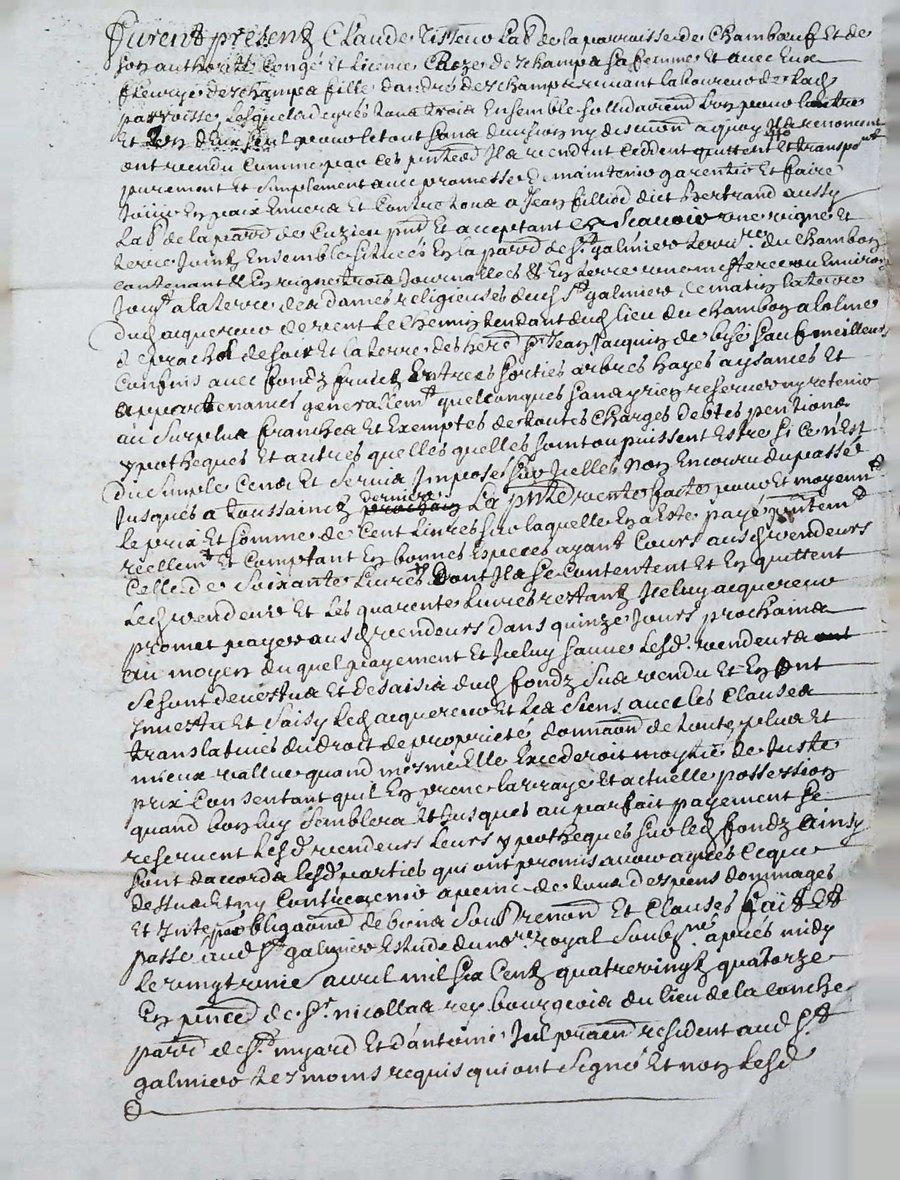 furent présentz Claude Tisseur Lab^r de la parroisse de Chambœuf Et de
son authorité Congé Et licence Claze deschamps sa femme Et avec Eux
fleurye deschamps fille d'andré deschamps vivant laboureur de lad
parroisse lesquels de grés tous trois Ensemble sollidairem^t l'un pour l'autre
Et l'un d'eux seul pour le tout sans division ny discution a quoy ils renoncent
ont vendu Comme par ces p^ntes Ils vendent Ceddent quittent Et transportent
purement Et simplement avec promesse de maintenir garentir Et faire
Jouir En paix Envers Et Contre tous a Jean filliod dict Bertrand aussy
Lab^r de la parr^e de Cuzieu p^nt Et acceptant Scavoir une vigne Et
terre Joints Ensemble situées En la parr^e de S^t galmier terri^re du Chambon
contenant En vigne trois Journallées & En terre une mesterée ou Environ
Joug^t a la terre des dames religieuses dud S^t galmier de matin la terre
dud acquereur de vent Le Chemin tendant dud lieu du chambon a lolme
de soir Et la terre des her^s Jean Jacquin de bise sauf meilleurs
Confins avec fondz fruitz Entrées sorties arbres hayes aysances Et
appartenances generallem^t quelconques sans y rien reserver ny retenir
au surplus franches Et Exemptes de toutes Charges debtes pentions
ypotheques Et autres quelles quelles soint ou puissent Estre si ce n'Est
du simple Cens Et servis Imposé sur Icelles non Encouru du passé
Jusques a toussainctz derniere La p^nte vente faite pour Et moyenn^t
le prix Et somme de Cent Livres sur laquelle En a Esté payé p^ntem^t
réellem^t Et Comptant En bonnes Especes ayant Cours ausd vendeurs
Celle de soixante Livres Dont Ils se Contentent Et En quittent
Led vendeur Et Les quarente Livres restantz Iceluy acquereur
promet payer ausd vendeurs dans quinze Jours prochains
au moyen du quel payement Et Iceluy sauve Lesd. vendeurs
se sont devestus Et desaisis dud fondz sus vendu Et En ont
Investu Et saisy Led acquereur Et Les siens avec les Clauses
translatives du droit de propriété donnaon de toute plus Et
mieux vallue quand mesme Elle Excederoit moytié de Juste
prix Consentant quil En prene la vraye Et actuelle possession
quand bon luy semblera Et Jusques au parfait payement se
reservent Lesd vendeurs Leurs ypotheques sur led fondz ainsy
sont d'accord lesd parties qui ont promis avoir agrées Ceque
dessus Et ny Contrevenir a peine de tous despens dommages
Et Inte^ts obligaon de biens Soub^on renon^on Et Clauses fait Et
passé aud S^t galmier Estude du no^re royal soub^né après midy
Le vingt troi^e avril mil six Centz quatrevingtz quatorze
En p^nce de S^r nicollas rey bourgeois du lieu de la conche
parr^e de S^t myard Et d'antoine praticien resident aud S^t
galmier tesmoins requis qui ont Signé Et non Lesd